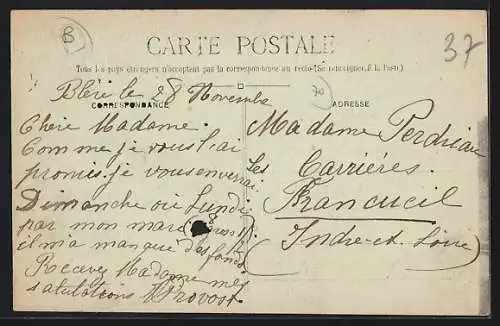 B
37
CARTE POSTALE
Tous les pays étrangers n'acceptent pas la correspondance au recto (Se renseigner à la Poste)
Bléré le 28 Novembre
70
CORRESPONDANCE
ADRESSE
Chère Madame.
Comme je vous l'ai
promis je vous enverrai
Dimanche ou Lundi
par mon mari
il m'a manqué des fonds
Recevez Madame mes
salutations Provost
Madame Perdriau
Les Carrières.
Francueil
(Indre-et-Loire)